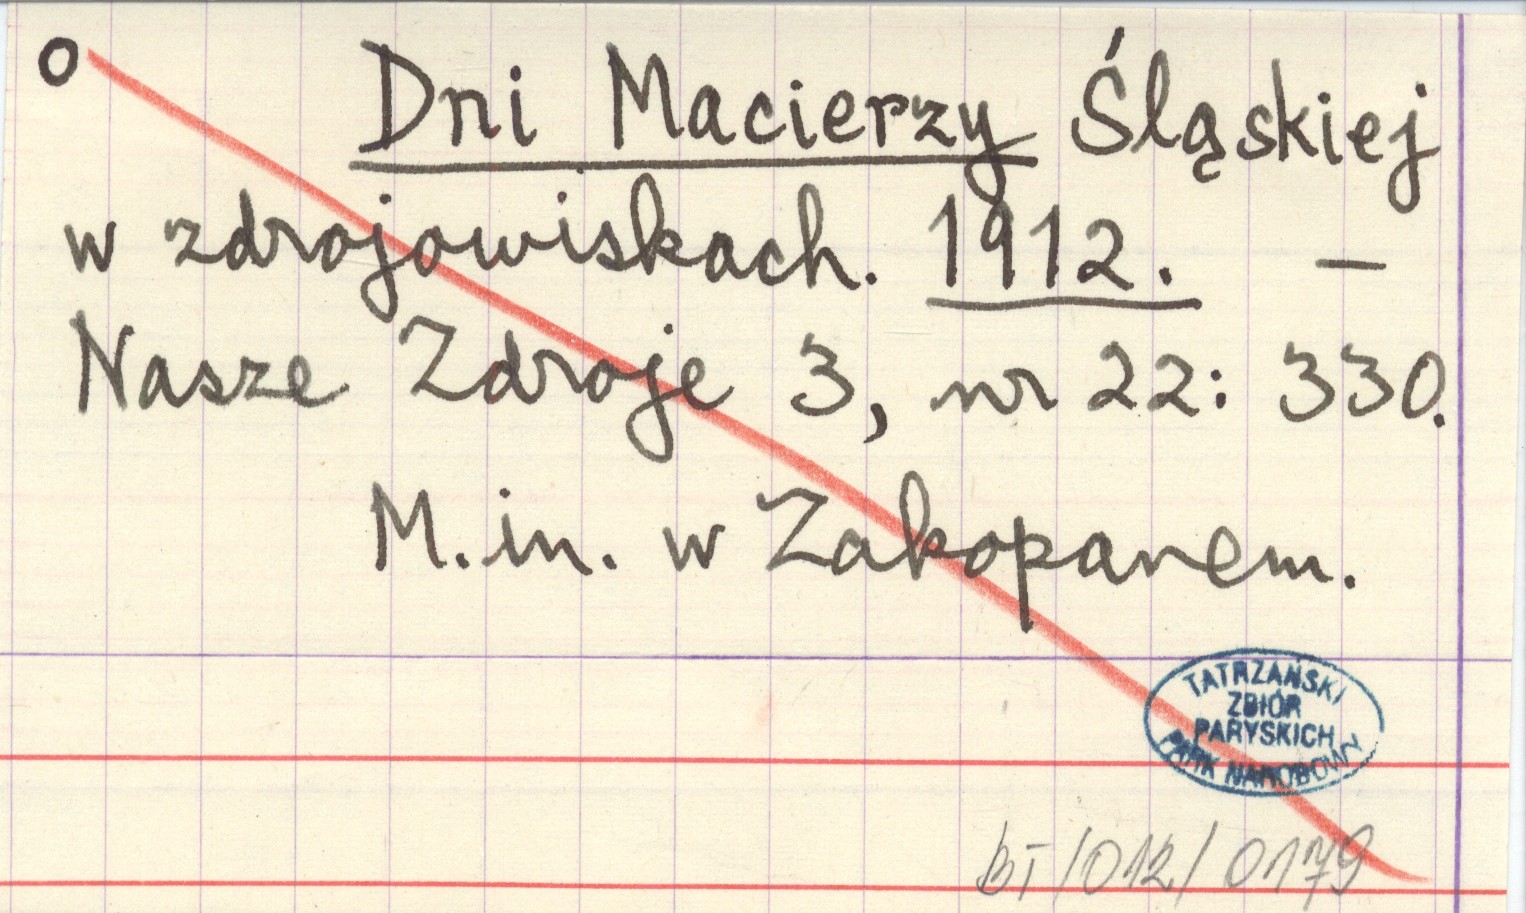 o Dni Macierzy Śląskiej
w zdrojowiskach. 1912. —
Nasze Zdroje 3, nr 22: 330.
M. in. w Zakopanem.
TATRZAŃSKI
ZBIÓR
PARYSKICH
PARK NARODOWY
BT/012/0179